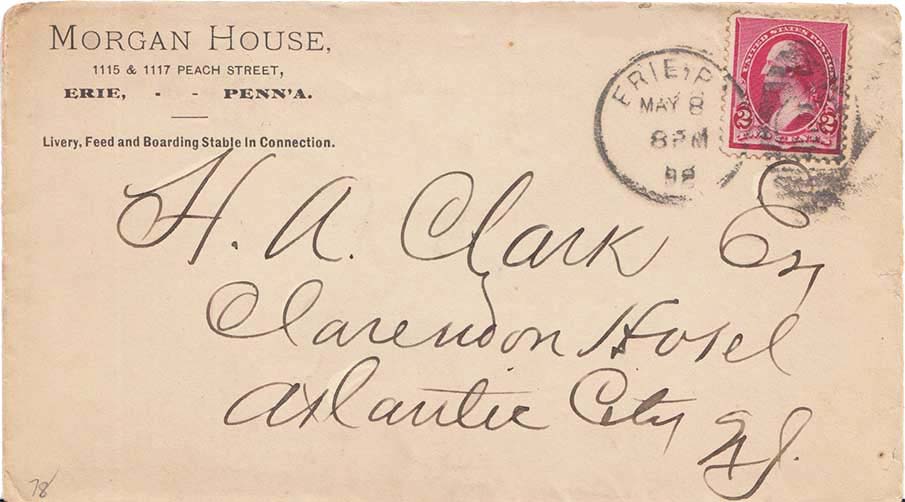 MORGAN HOUSE,
1115 & 1117 PEACH STREET,
ERIE, - - PENN'A.
Livery, Feed and Boarding Stable In Connection.
ERIE, P
MAY 8
8 PM
UNITED STATES POSTAGE
2 2
H. A. Clark Esq
Clarendon Hotel
Atlantic City
N.J.
78